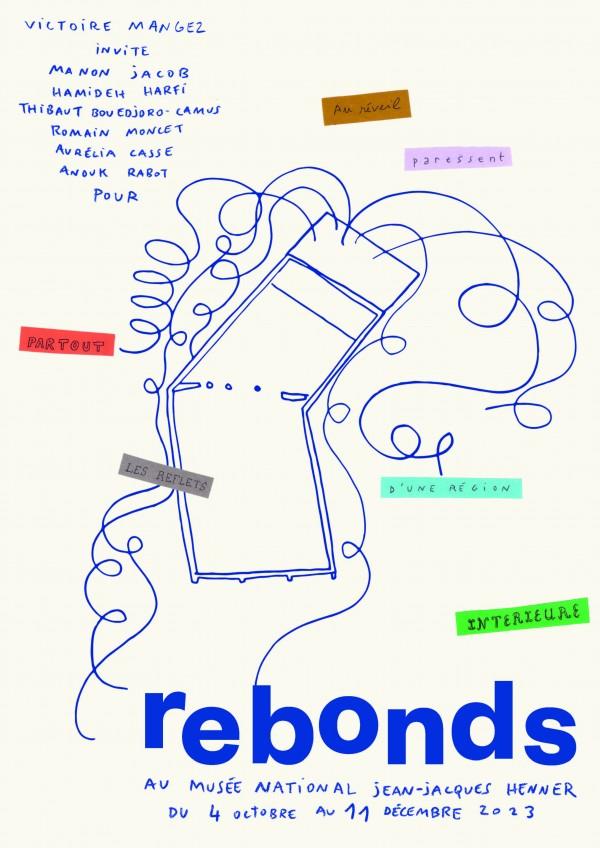 VICTOIRE MANGEZ
INVITE
MANON JACOB
HAMIDEH HARFI
THIBAUT BOUEDJORO-CAMUS
ROMAIN MONCET
AURÉLIA CASSE
ANOUK RABOT
POUR
Au réveil
paressent
PARTOUT
LES REFLETS
D'UNE RÉGION
INTERIEURE
rebonds
AU MUSÉE NATIONAL JEAN-JACQUES HENNER
DU 4 OCTOBRE AU 11 DÉCEMBRE 2023